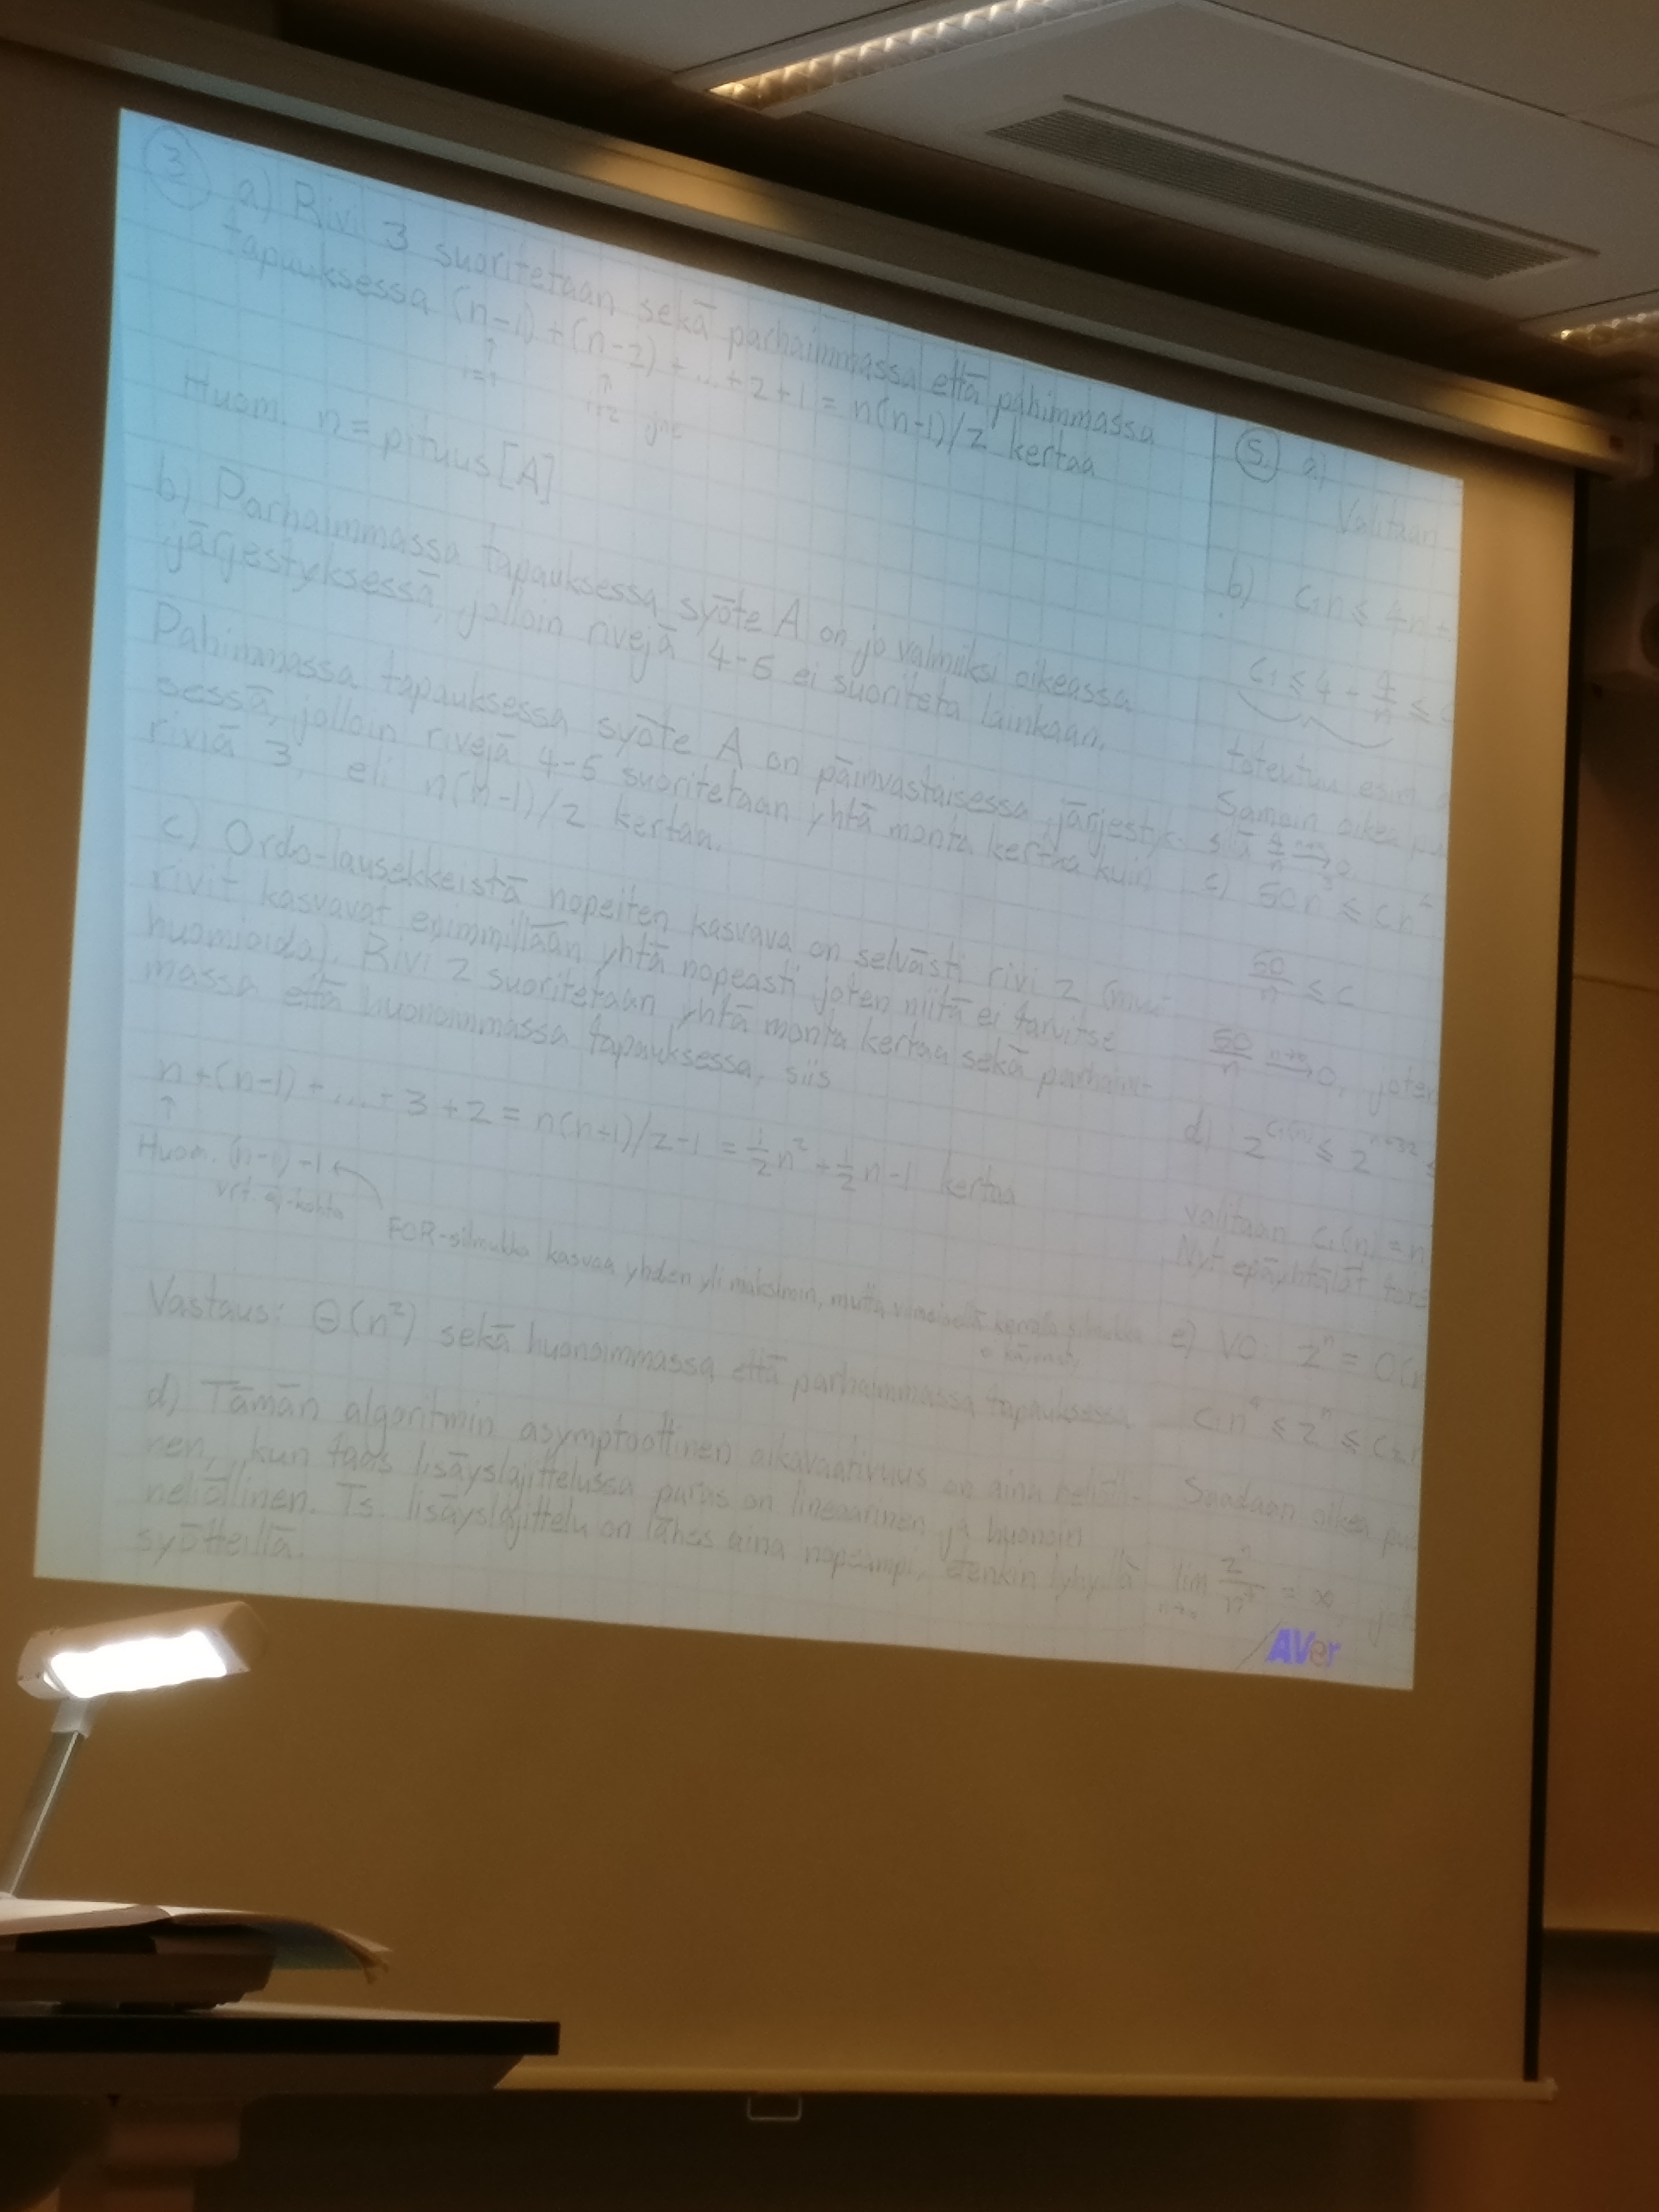 3
a) Rivi 3 suoritetaan sekä parhaimmassa että pahimmassa
tapauksessa (n-1)+(n-2)+...+2+1 = n(n-1)/2 kertaa
i=1 i=2 jne
Huom. n = pituus[A]
b) Parhaimmassa tapauksessa syöte A on jo valmiiksi oikeassa
järjestyksessä, jolloin rivejä 4-6 ei suoriteta lainkaan.
Pahimmassa tapauksessa syöte A on päinvastaisessa järjestyk-
sessä, jolloin rivejä 4-6 suoritetaan yhtä monta kertaa kuin
riviä 3, eli n(n-1)/2 kertaa.
c) Ordo-lausekkeistä nopeiten kasvava on selvästi rivi 2 (muut
rivit kasvavat enimmillään yhtä nopeasti joten niitä ei tarvitse
huomioida). Rivi 2 suoritetaan yhtä monta kertaa sekä parhaim-
massa että huonoimmassa tapauksessa, siis
n+(n-1)+...+3+2 = n(n+1)/2-1 = ½n²+½n-1 kertaa
Huom. (n-1)-1
vrt. a)-kohta
FOR-silmukka kasvaa yhden yli maksimin, mutta viimeisellä kerralla
Vastaus: Θ(n²) sekä huonoimmassa että parhaimmassa tapauksessa
d) Tämän algoritmin asymptoottinen aikavaativuus on aina neliölli-
nen, kun taas lisäyslajittelussa paras on lineaarinen ja huonoin
neliöllinen. Ts. lisäyslajittelu on lähes aina nopeampi, etenkin lyhyillä
syötteillä.
5. a)
Valitaan
b) c₁n ≤ 4n
c₁ ≤ 4 - 4/n ≤
toteutuu esim
Samoin oikea
sillä 4/n → 0.
c) 50n³ ≤ cn⁴
50/n ≤ c
50/n → 0, joten
d) 2^c₁(n) ≤ 2^n+32 ≤
valitaan c₁(n) = n
Nyt epäyhtälöt
e) VO 2ⁿ = O(n
c₁n⁴ ≤ 2ⁿ ≤ c₂n
Saadaan oikea
lim 2ⁿ/n⁴ = ∞
AVer